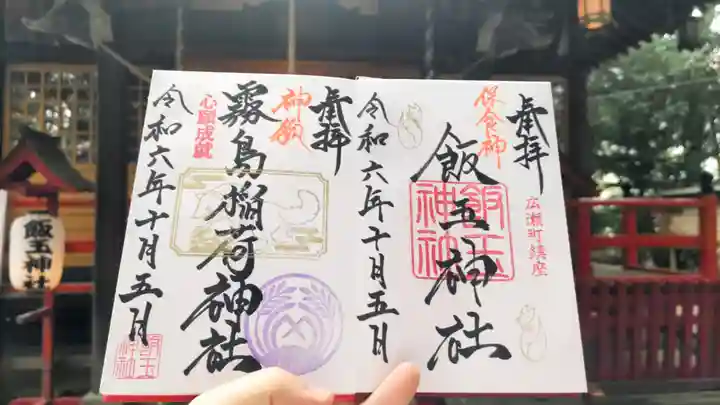 奉拝
保食神
広瀬町鎮座
飯玉神社
飯玉神社
令和六年十月五日
奉拝
神徳
霧島稲荷神社
心願成就
令和六年十月五日
飯玉神社
飯玉神社